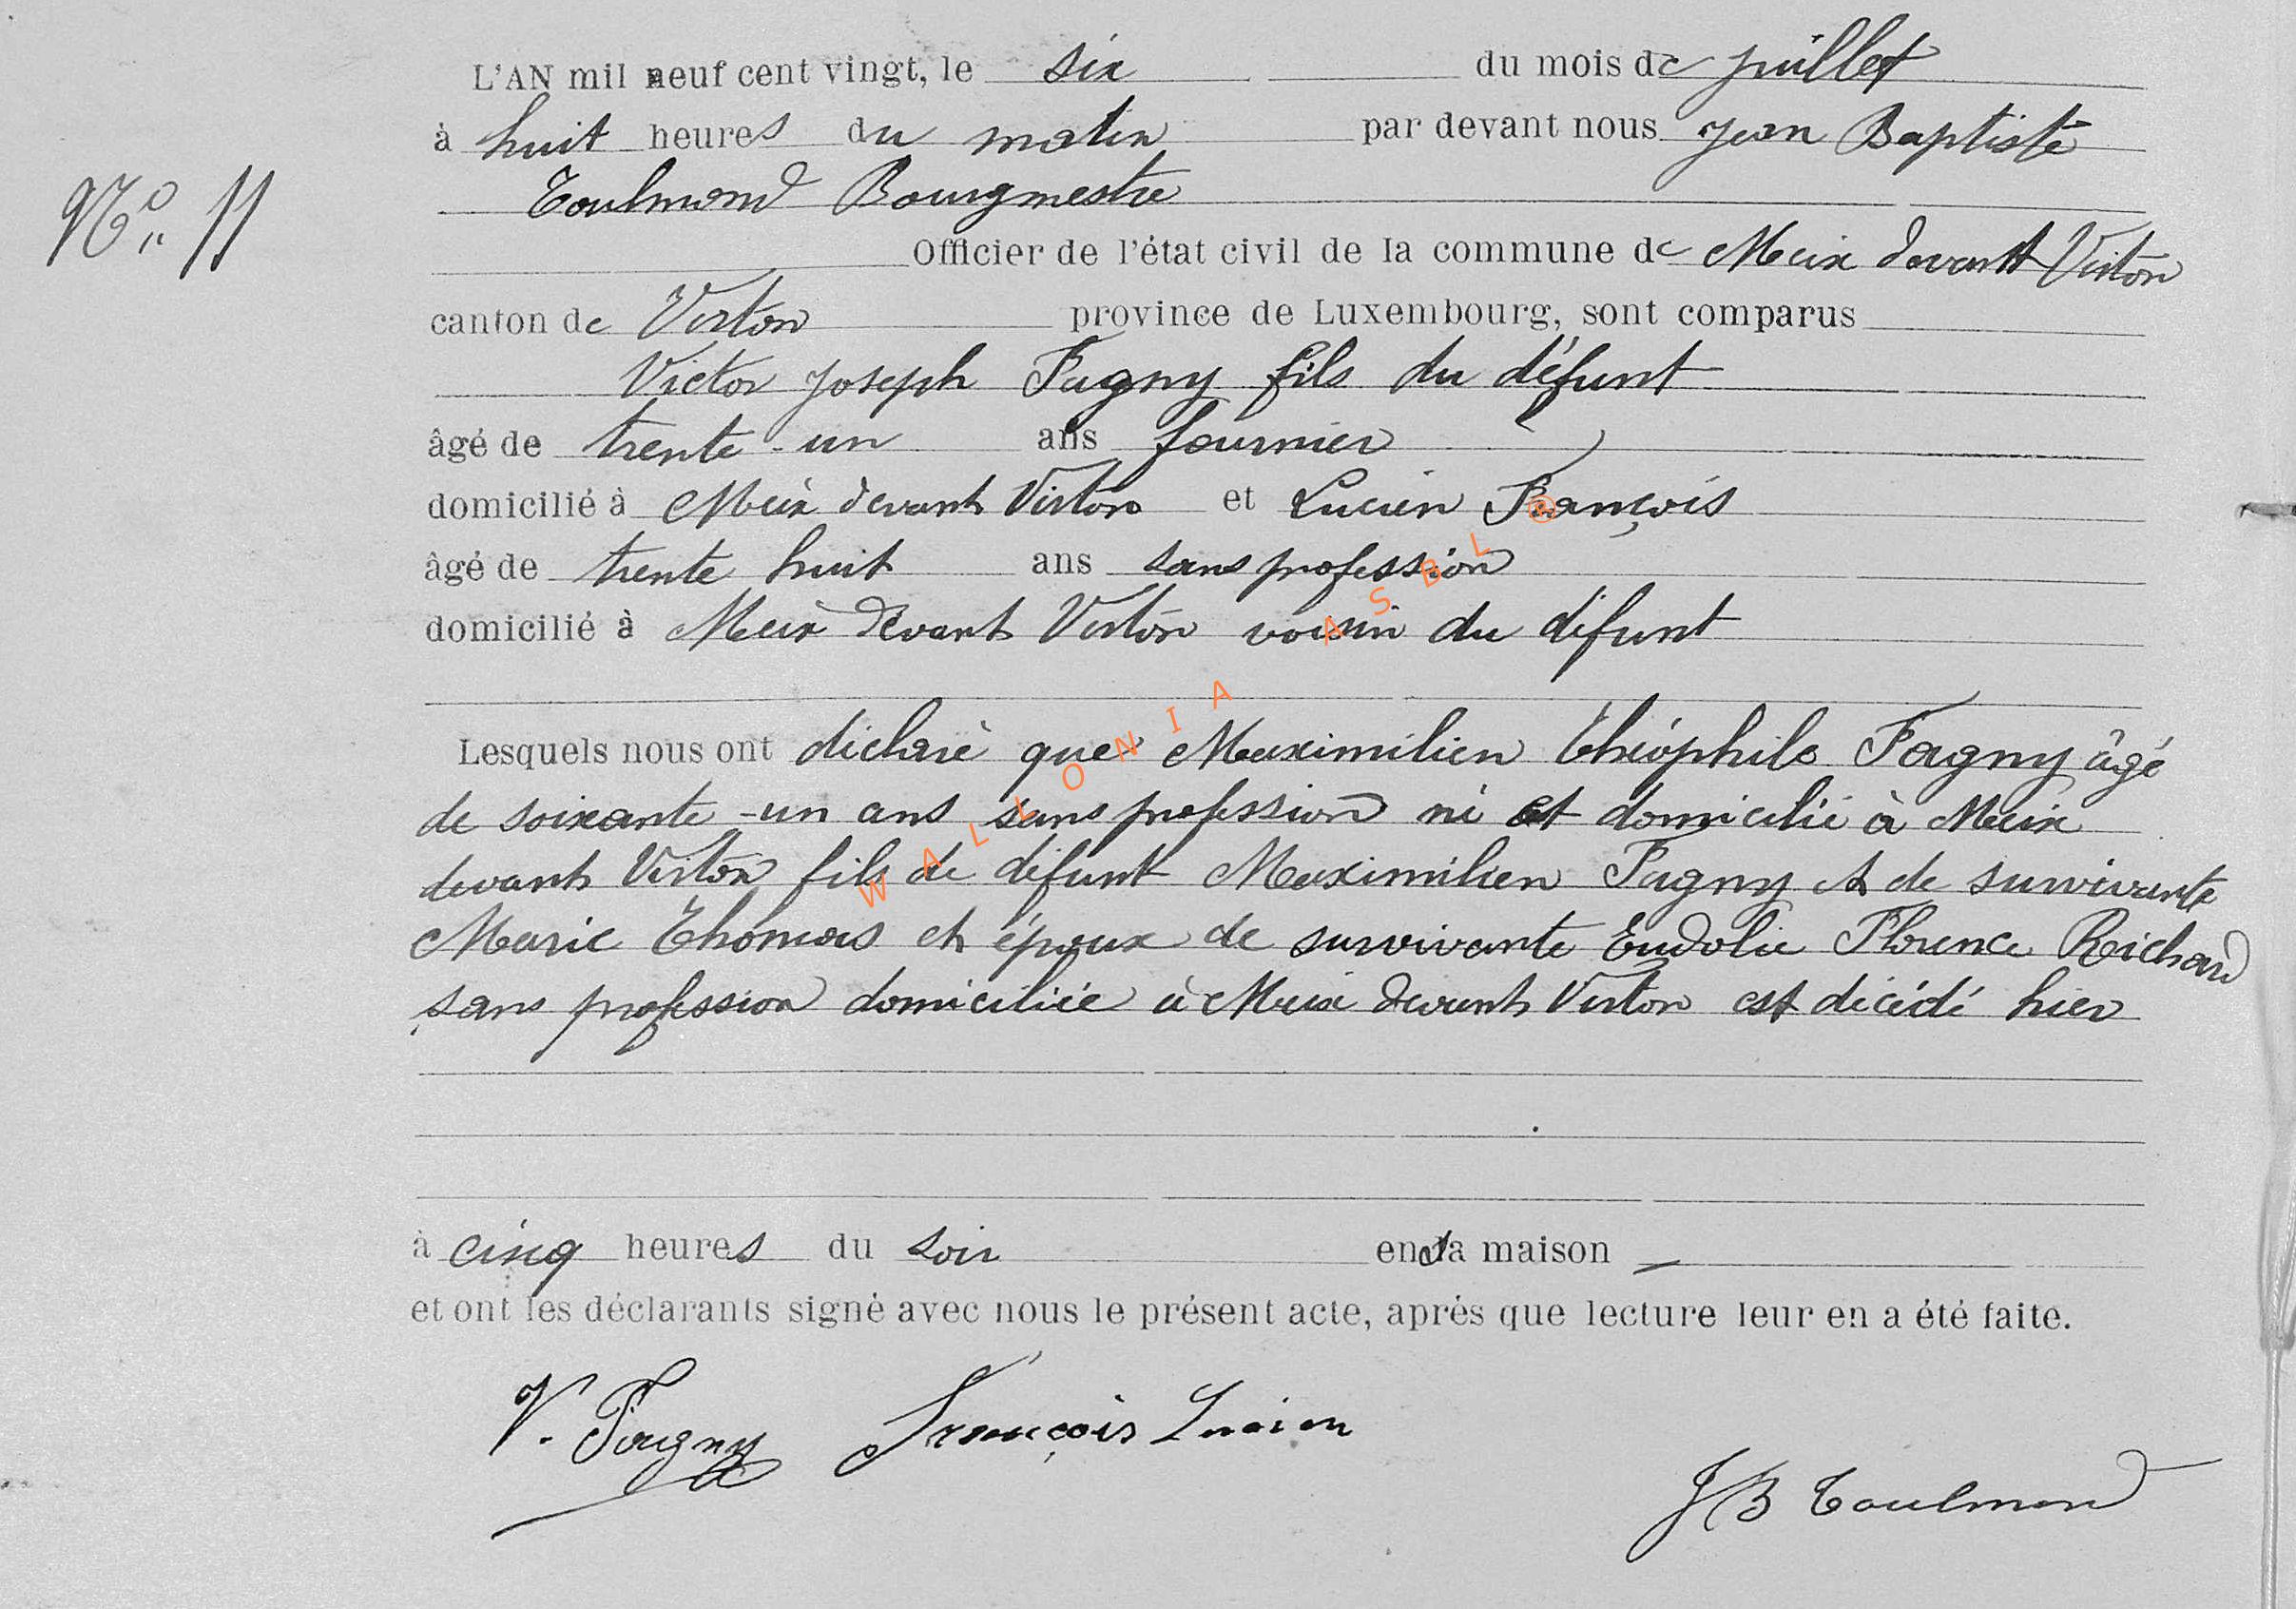 L'AN mil neuf cent vingt, le six du mois de juillet
à huit heures du matin par devant nous Jean Baptiste
Toulmond Bourgmestre
N° 11
Officier de l'état civil de la commune de Meix devant Virton
canton de Virton province de Luxembourg, sont comparus
Victor Joseph Fagny fils du défunt
âgé de trente-un ans fournier
domicilié à Meix devant Virton et Lucien François
âgé de trente huit ans sans profession
domicilié à Meix devant Virton voisin du défunt
Lesquels nous ont déclaré que Maximilien Théophile Fagny âgé
de soixante-un ans sans profession né et domicilié à Meix
devant Virton fils de défunt Maximilien Fagny et de survivante
Marie Thomas et époux de survivante Eudolie Florence Reichard
sans profession domiciliée à Meix devant Virton est décédé hier
à cinq heures du soir en sa maison
et ont les déclarants signé avec nous le présent acte, après que lecture leur en a été faite.
V. Fagny François Lucien
J B Toulmond
WALLONIA ASBL ®